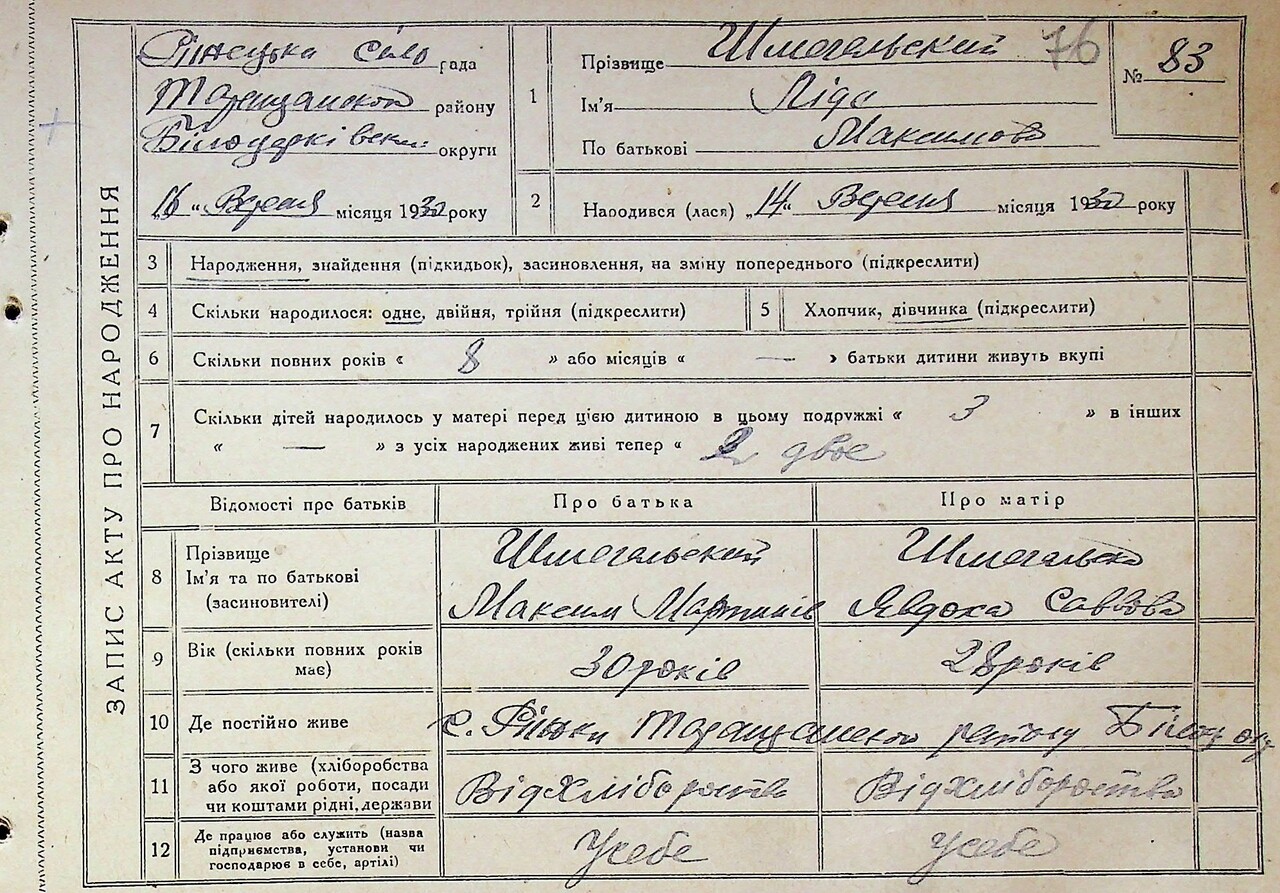 ЗАПИС АКТУ ПРО НАРОДЖЕННЯ
сіль рада
району
округи
„16“ Вересня місяця 1930 року
1
Прізвище Шмогальский
Ім'я Ліда
По батькові Максимова
76
№ 83
2
Народився (лася) „14“ Вересня місяця 1930 року
3 Народження, знайдення (підкидьок), засиновлення, на зміну попереднього (підкреслити)
4 Скільки народилося: одне, двійня, трійня (підкреслити)
5 Хлопчик, дівчинка (підкреслити)
6 Скільки повних років « 8 » або місяців « — » батьки дитини живуть вкупі
7 Скільки дітей народилось у матері перед цією дитиною в цьому подружжі « 3 » в інших
« — » з усіх народжених живі тепер « 2 двоє
Відомості про батьків Про батька Про матір
8
Прізвище Шмогальский Шмогальска
Ім'я та по батькові
(засиновителі) Максим Мартинів Явдоха Саввова
9 Вік (скільки повних років
має) 30 років 28 років
10 Де постійно живе с. району
11
З чого живе (хліборобства
або якої роботи, посади
чи коштами рідні, держави
Від Хліборобства Від Хліборобства
12
Де працює або служить (назва
підприємства, установи чи
господарює в себе, артілі)
У себе У себе